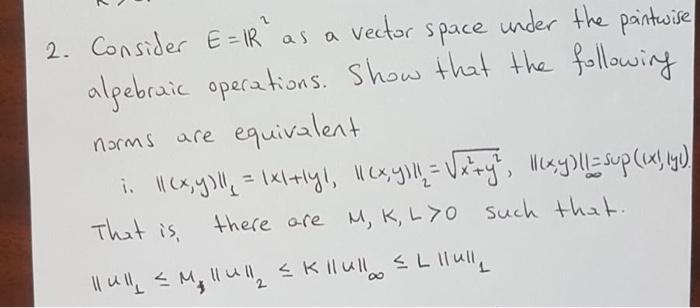 2. Consider E = ℝ² as a vector space under the pointwise
algebraic operations. Show that the following
norms are equivalent
i. ||(x,y)||₁ = |x|+|y|, ||(x,y)||₂ = √(x²+y²), ||(x,y)||∞ = sup(|x|,|y|).
That is, there are M, K, L > 0 such that.
||u||₁ ≤ M ||u||₂ ≤ K ||u||∞ ≤ L ||u||₁